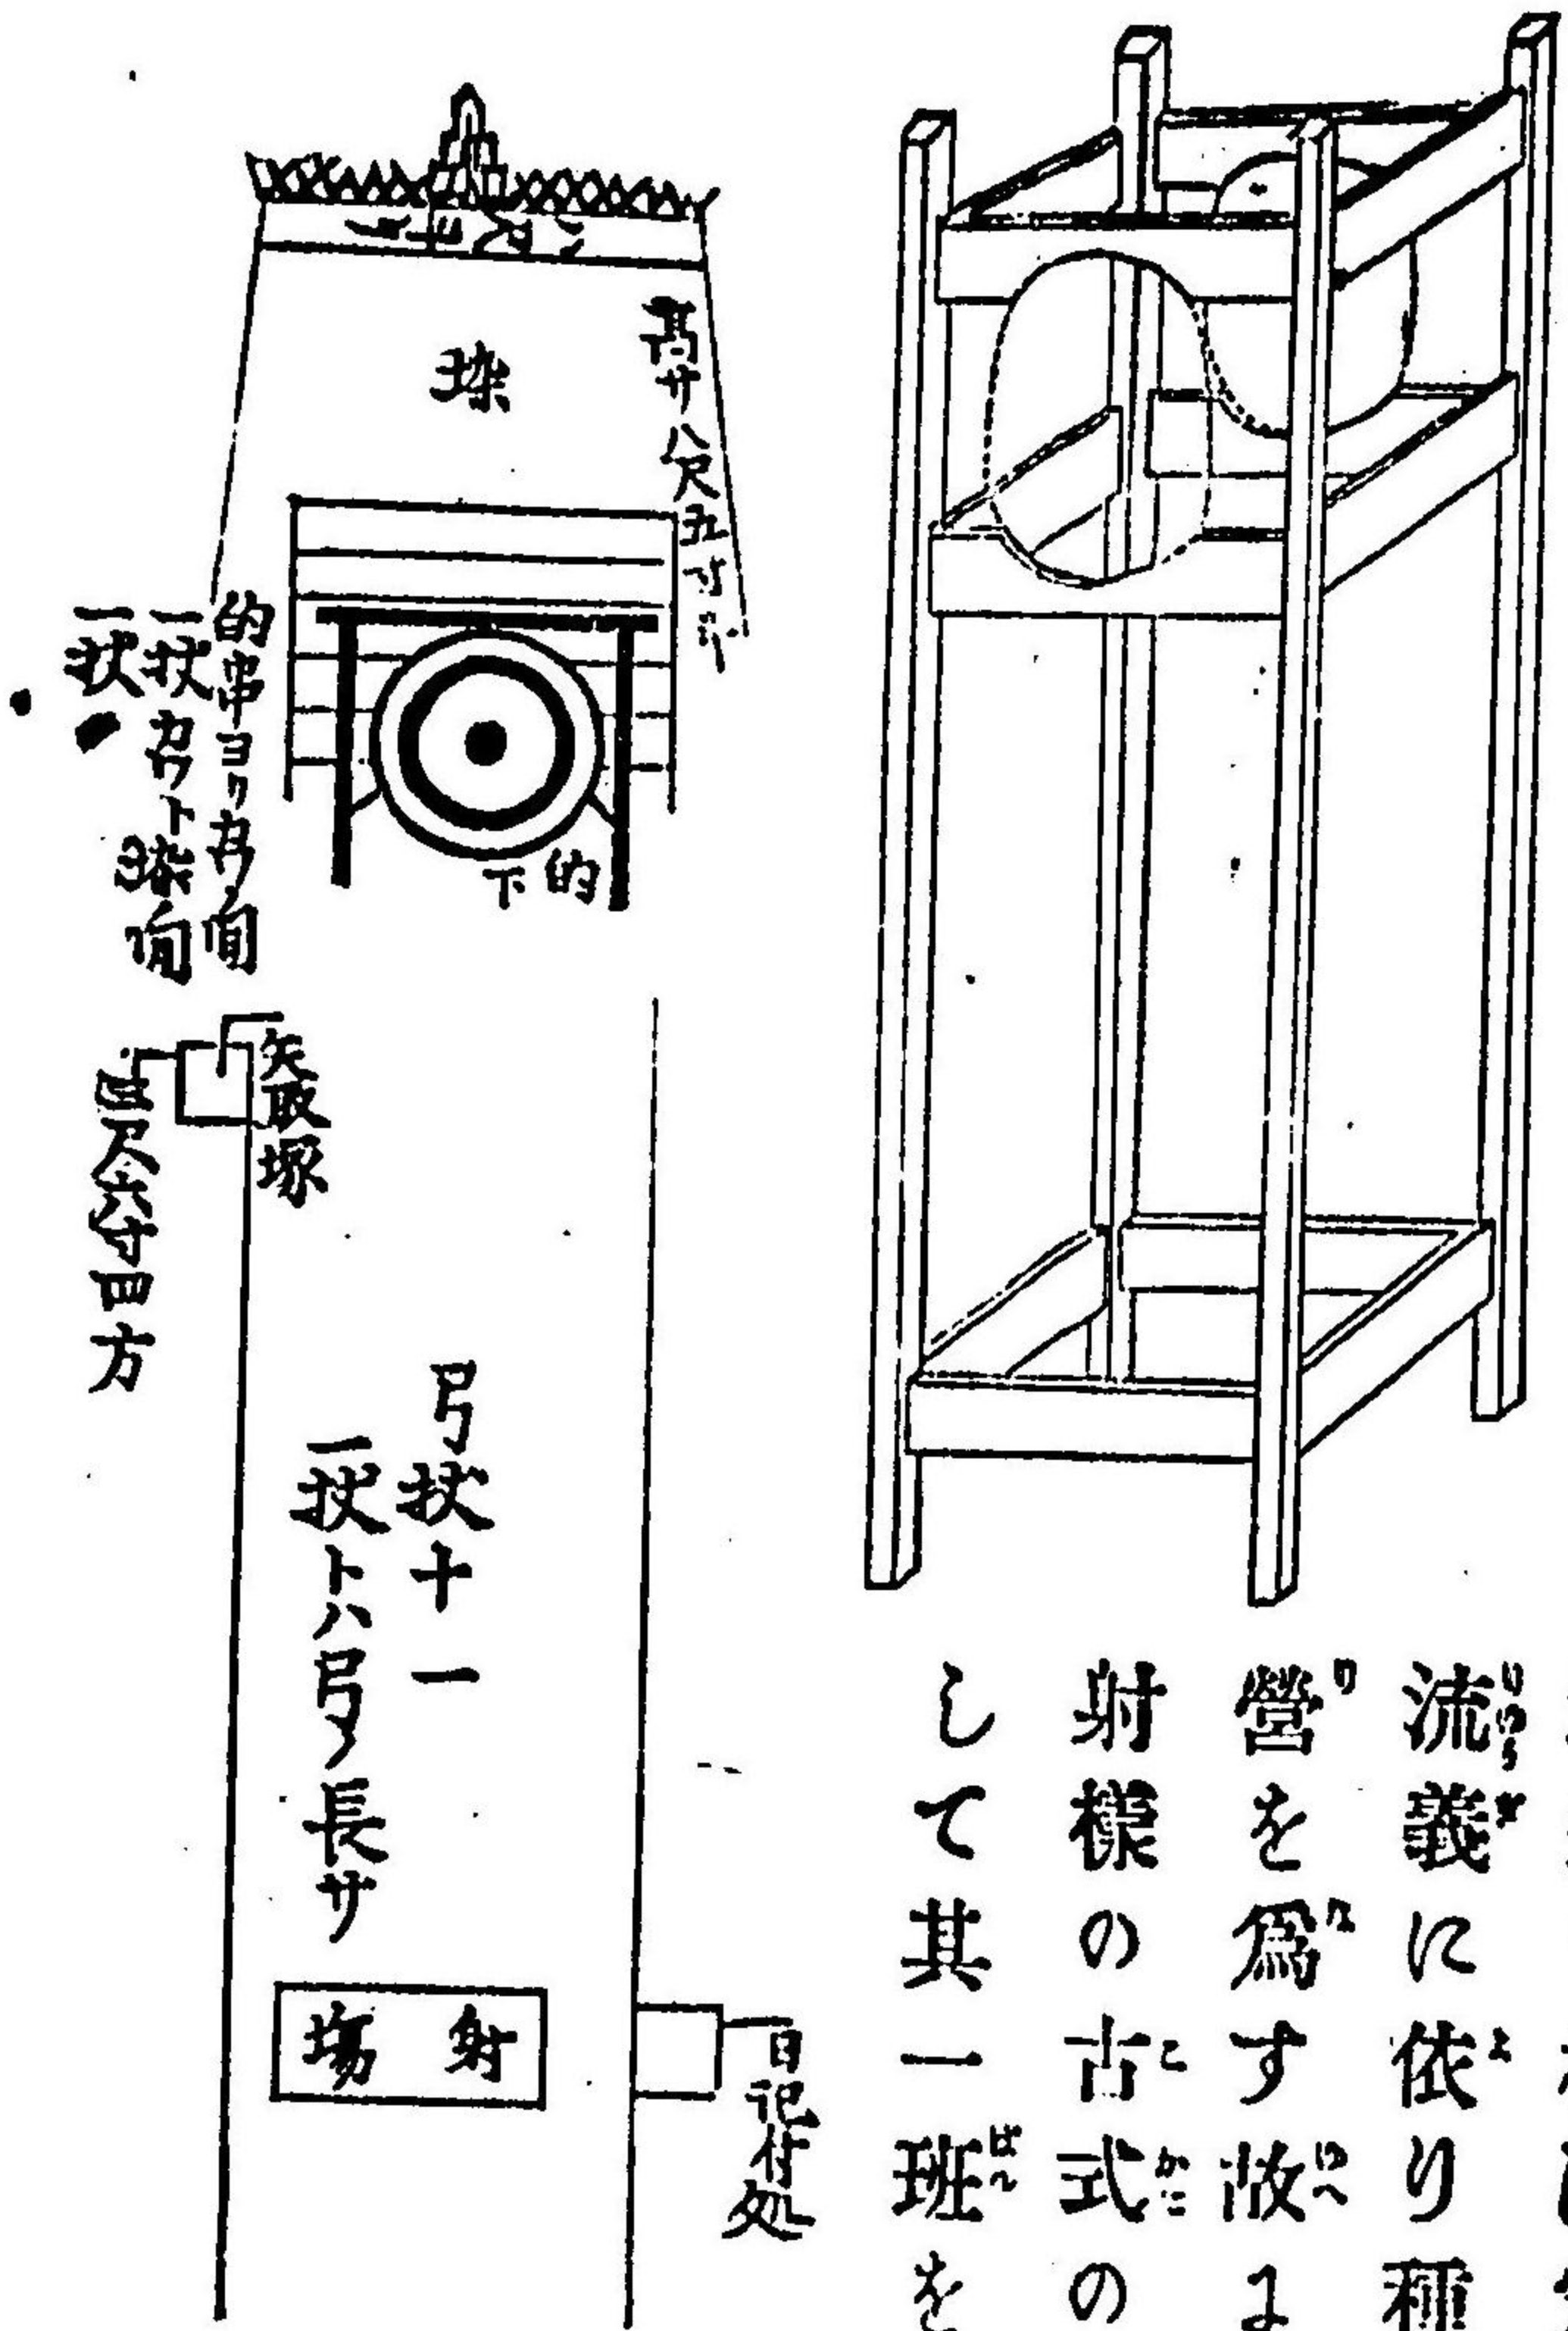 流義に依り種
營を爲す故
射樣の古式の
して其一班を
高サ八尺五寸
垜
的下
的串ヨリカワノ間
一杖カワト垜間
一杖
矢取塚
尺六寸四方
弓杖十一
一杖トハ弓ノ長サ
射場
日記付処